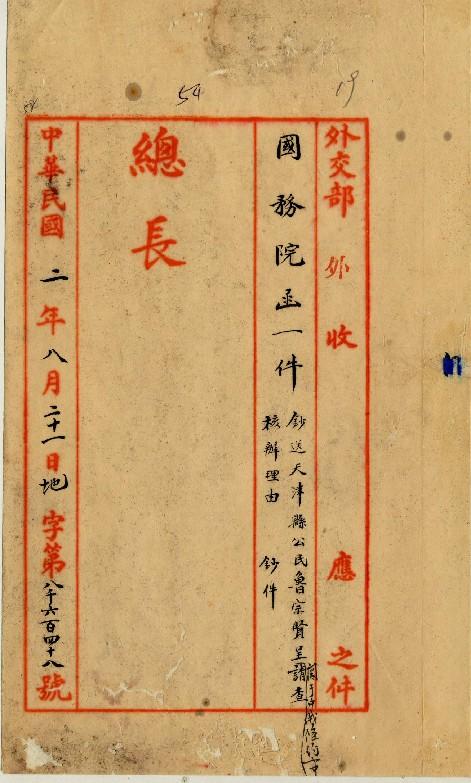 54
19
外交部外收應之件
國務院函一件
鈔送天津縣公民魯宗賢呈請查
核辦理由 鈔件
總長
中華民國二年八月二十一日地字第八千六百四十八號